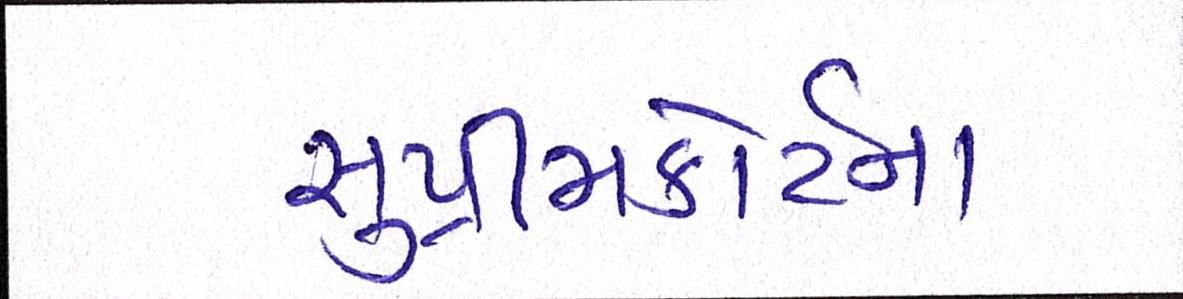 સુપ્રીમકોર્ટના